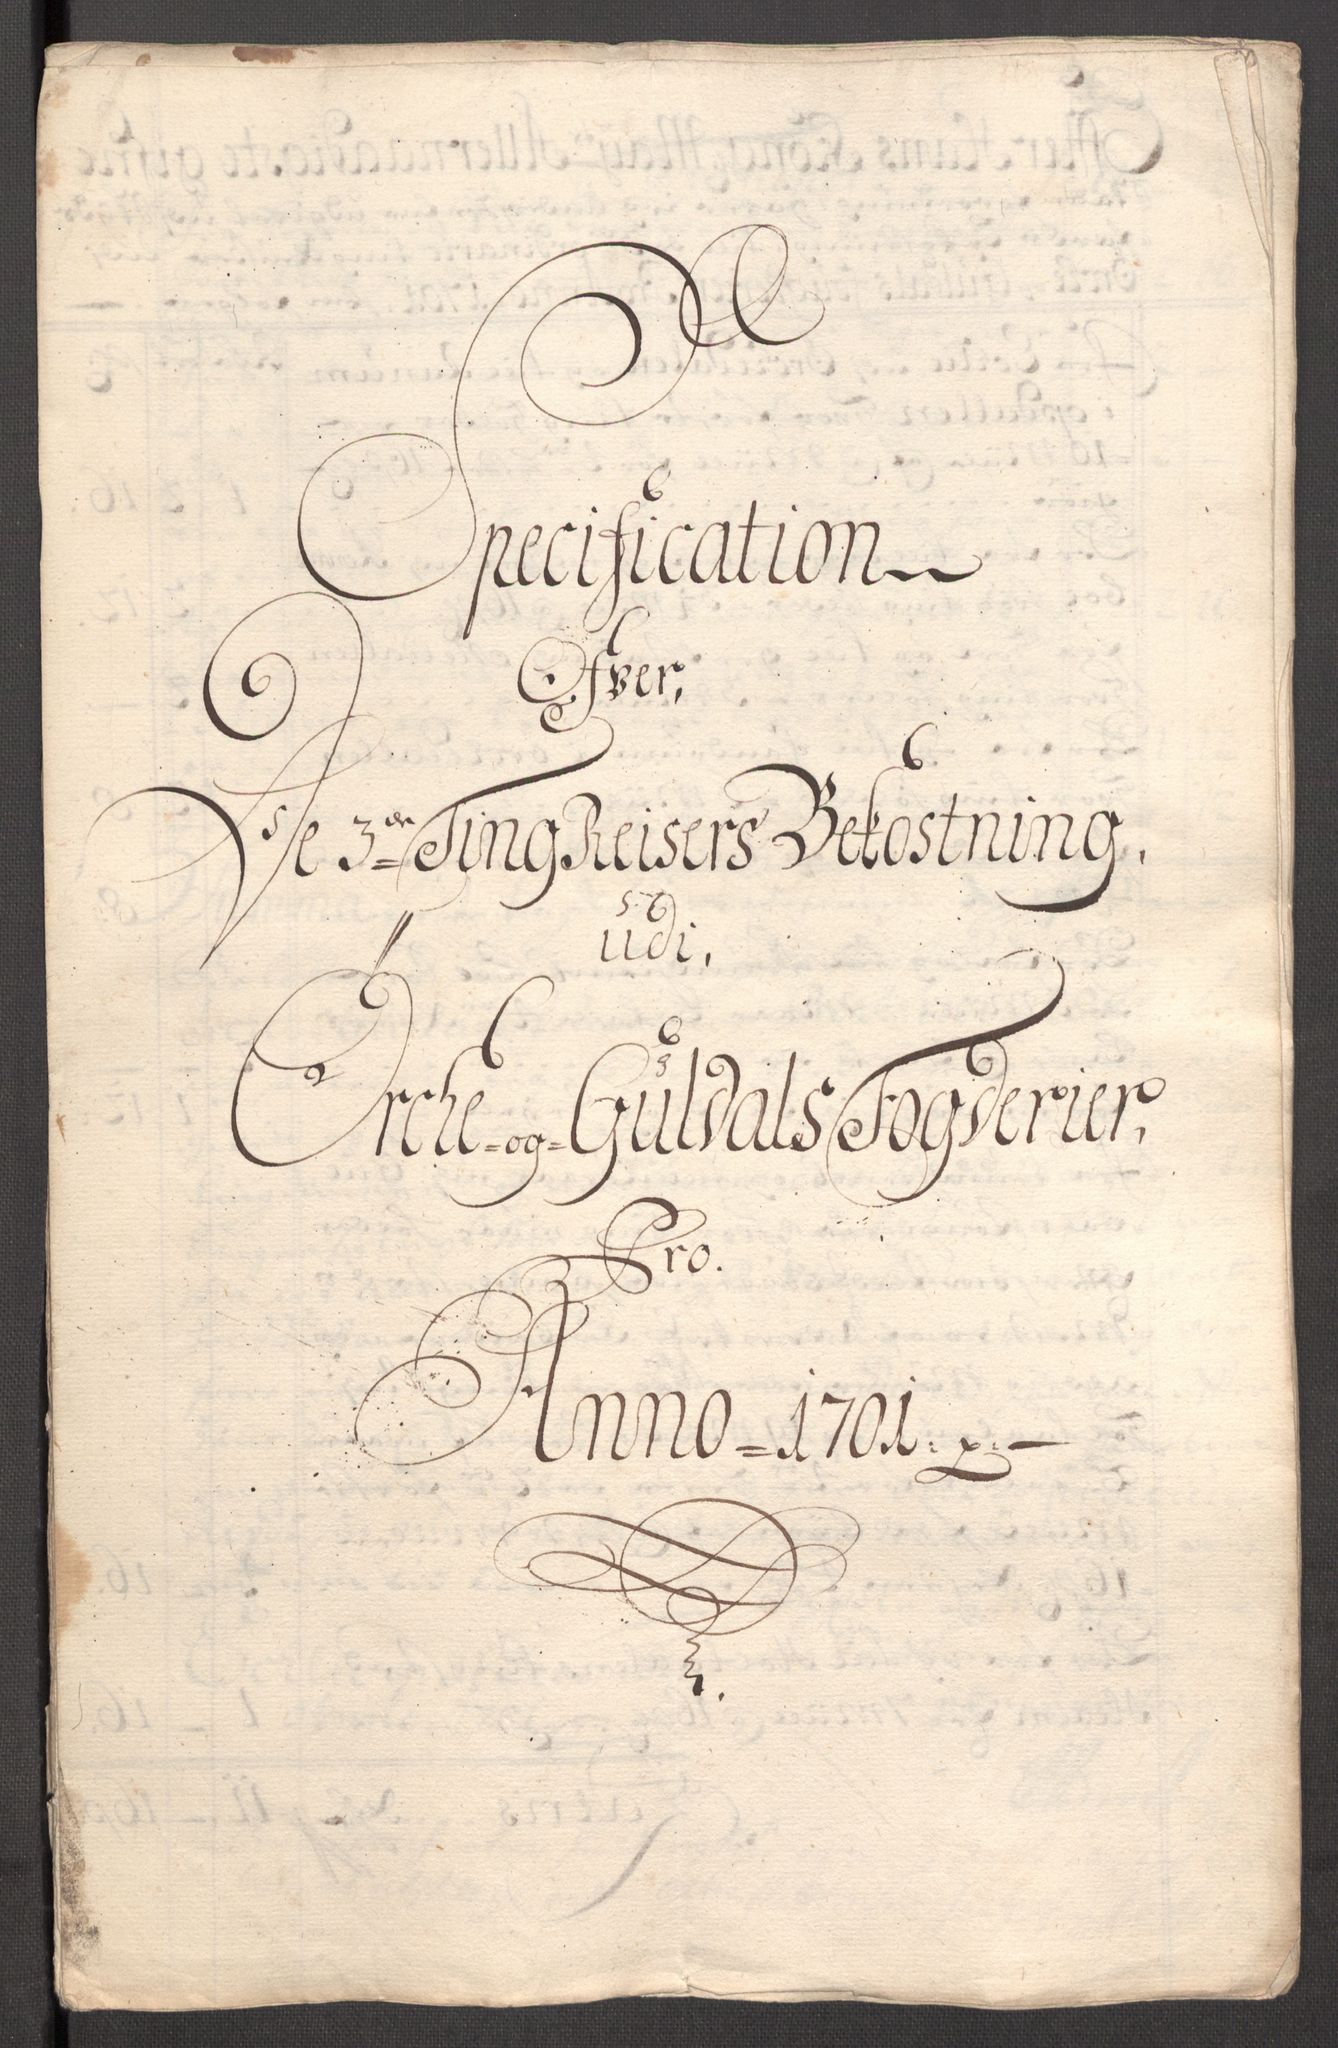 Specification
Ofver,
De 3de Ting Reisers Bekostning,
üdi,
Orche=og=Güldals Fogderier,
Pro.
Anno=1701: